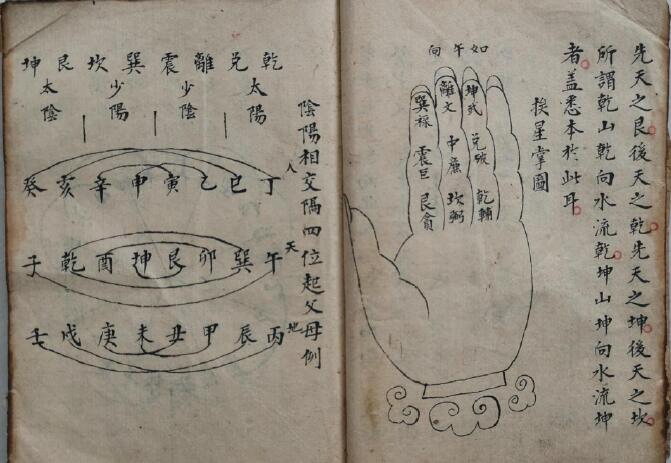 先天之艮後天之乾先天之坤後天之坎
所謂乾山乾向水流乾坤山坤向水流坤
者蓋悉本於此耳
挨星掌圖
如午向
坤武 兌破 乾輔
離文 中廉 坎弼
巽祿 震巨 艮貪
陰陽相交隔四位起父母例
乾兌離震巽坎艮坤
太陽 少陰 少陽 太陰
人 丁巳乙寅申辛亥癸
天 午巽卯艮坤酉乾子
地 丙辰甲丑未庚戌壬